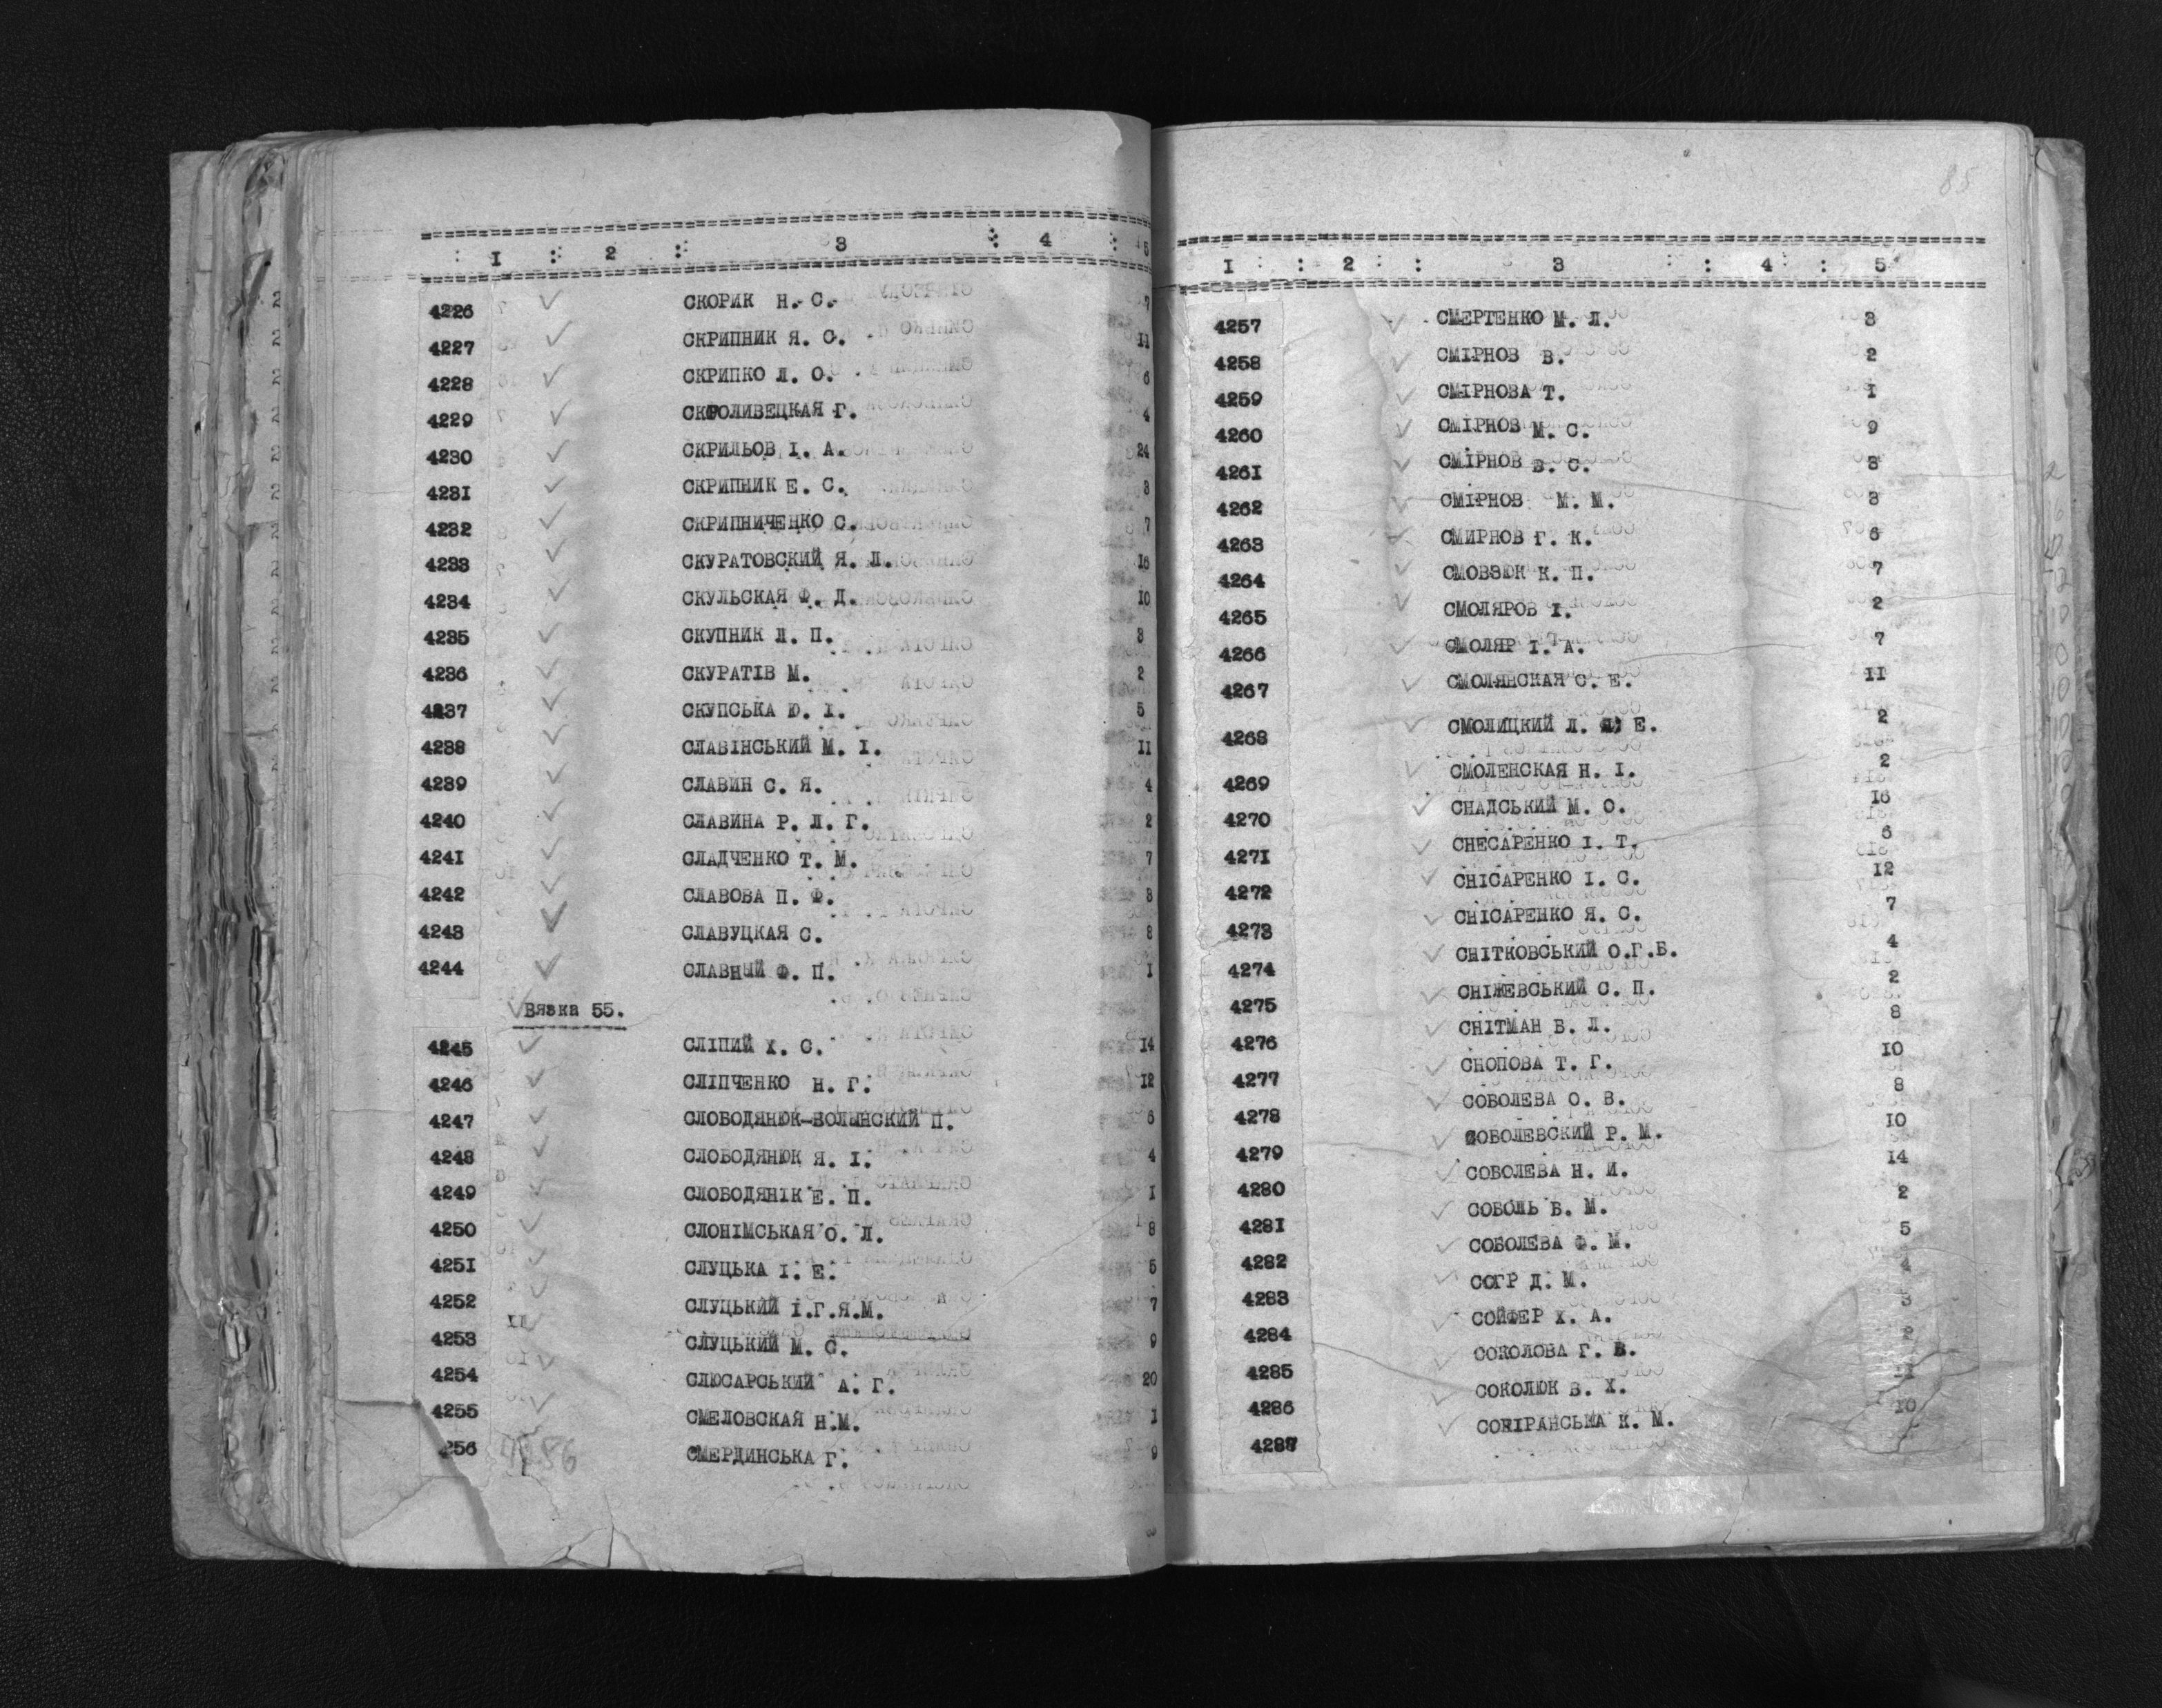 I : 2 : 3 : 4 : 5
4226 СКОРИК Н. С. 7
4227 СКРИПНИК Я. С. 11
4228 СКРИПКО Л. О. 6
4229 СКРОЛИВЕЦКАЯ Г. 4
4230 СКРИЛЬОВ І. А. 24
4231 СКРИПНИК Е. С. 3
4232 СКРИПНИЧЕНКО С. 7
4233 СКУРАТОВСКИЙ Я. Л. 16
4234 СКУЛЬСКАЯ Ф. Д. 10
4235 СКУПНИК Л. П. 3
4236 СКУРАТІВ М. 2
4237 СКУПСЬКА Ю. І. 5
4238 СЛАВІНСЬКИЙ М. І. 11
4239 СЛАВИН С. Я. 4
4240 СЛАВИНА Р. Л. Г. 2
4241 СЛАДЧЕНКО Т. М. 7
4242 СЛАВОВА П. Ф. 3
4243 СЛАВУЦКАЯ С. 8
4244 СЛАВНЫЙ Ф. П. I
Вязка 55.
4245 СЛІПИЙ Х. С. 14
4246 СЛІПЧЕНКО Н. Г. 12
4247 СЛОБОДЯНЮК-ВОЛЫНСКИЙ П. 6
4248 СЛОБОДЯНЮК Я. І. 4
4249 СЛОБОДЯНІК Е. П. I
4250 СЛОНІМСЬКАЯ О. Л. 8
4251 СЛУЦЬКА І. Е. 5
4252 СЛУЦЬКИЙ І.Г.Я.М. 7
4253 СЛУЦЬКИЙ М. С. 9
4254 СЛЮСАРСЬКИЙ А. Г. 20
4255 СМЕЛОВСКАЯ Н.М. 1
256 4256 СМЕРДИНСЬКА Г. 9
85
I : 2 : 3 : 4 : 5
4257 СМЕРТЕНКО М. Л. 3
4258 СМІРНОВ В. 2
4259 СМІРНОВА Т. I
4260 СМІРНОВ М. С. 9
4261 СМІРНОВ В. С. 3
4262 СМІРНОВ М. М. 3
4263 СМИРНОВ Г. К. 6
4264 СМОВЗЮК К. П. 7
4265 СМОЛЯРОВ І. 2
4266 СМОЛЯР І. А. 7
4267 СМОЛЯНСКАЯ С. Е. 11
4268 СМОЛИЦКИЙ Л. Я) Е. 2
4269 СМОЛЕНСКАЯ Н. І. 2
4270 СНАДСЬКИЙ М. О. 16
4271 СНЕСАРЕНКО І. Т. 6
4272 СНІСАРЕНКО І. С. 12
4273 СНІСАРЕНКО Я. С. 7
4274 СНІТКОВСЬКИЙ О.Г.Б. 4
4275 СНІЖЕВСЬКИЙ С. П. 2
4276 СНІТМАН Б. Л. 8
4277 СНОПОВА Т. Г. 10
4278 СОБОЛЕВА О. В. 8
4279 СОБОЛЕВСКИЙ Р. М. 10
4280 СОБОЛЕВА Н. И. 14
4281 СОБОЛЬ Б. М. 2
4282 СОБОЛЕВА Ф. М. 5
4283 СОГР Д. М. 4
4284 СОЙФЕР Х. А. 3
4285 СОКОЛОВА Г. В. 2
4286 СОКОЛЮК В. Х.
4287 СОКІРАНСЬКА К. М. 10